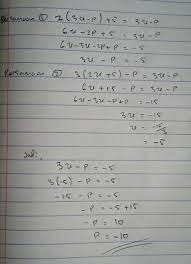 Persamaan ① 2(3u-P)+5 = 3u-P
6u-2P+5 = 3u-P
6u-3u-2P+P = -5
3u - P = -5
Persamaan ② 3(2u+5)-P = 3u-P
6u+15-P = 3u-P
6u-3u-P+P = -15
3u = -15
u = -15/3
= -5
Jadi:
3u-P = -5
3(-5)-P = -5
-15-P = -5
-P = -5+15
-P = 10
P = -10